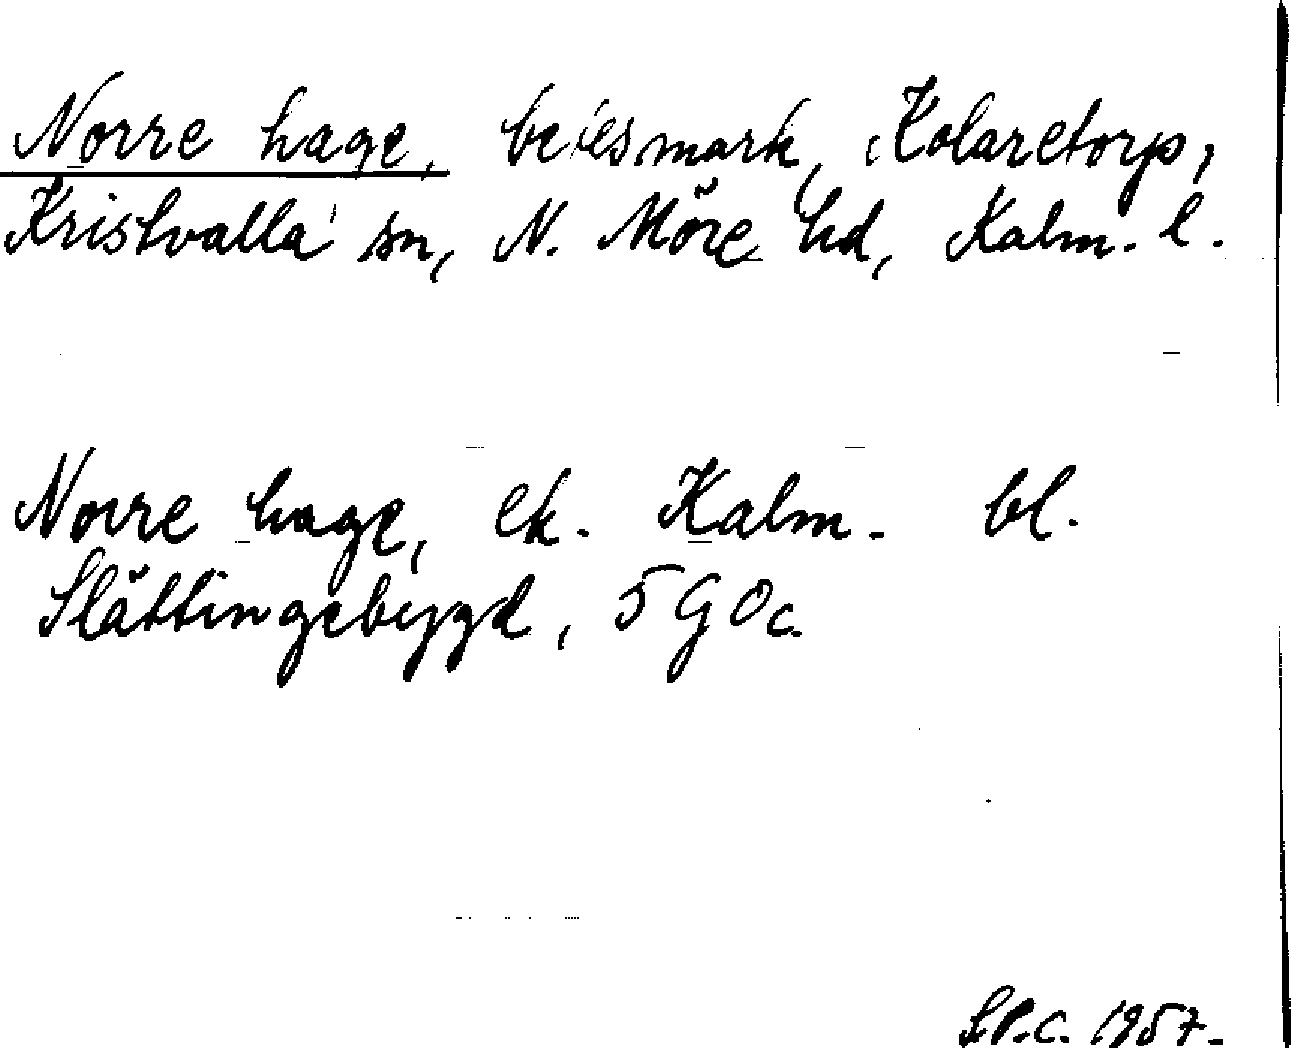 Norre hage, betesmark, Kolaretorp,
Kristvalla sn, N. Möre hd, Kalm. l.
Norre hage, ek. Kalm. bl.
Slättingebygd, 5 G 0 c.
S.P.C. 1957.